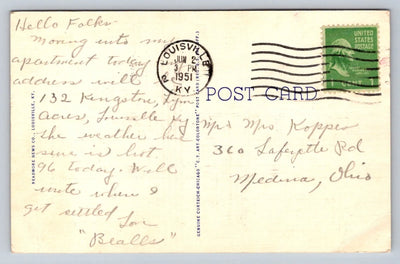 Hello Folks
Moving into my
apartment today
address will
132 Kingston, Lynn
Acres, Louisville Ky
the weather here
sure is hot.
96 today. Will
write when I
get settled
Love
"Bealls"
LOUISVILLE
JUN 2
PM
1951
KY.
POST CARD
Mr & Mrs Kopper
360 Lafayette Rd
Medina, Ohio
READMORE NEWS CO., LOUISVILLE, KY.
GENUINE CURTEICH-CHICAGO "C.T. ART-COLORTONE" POST CARD